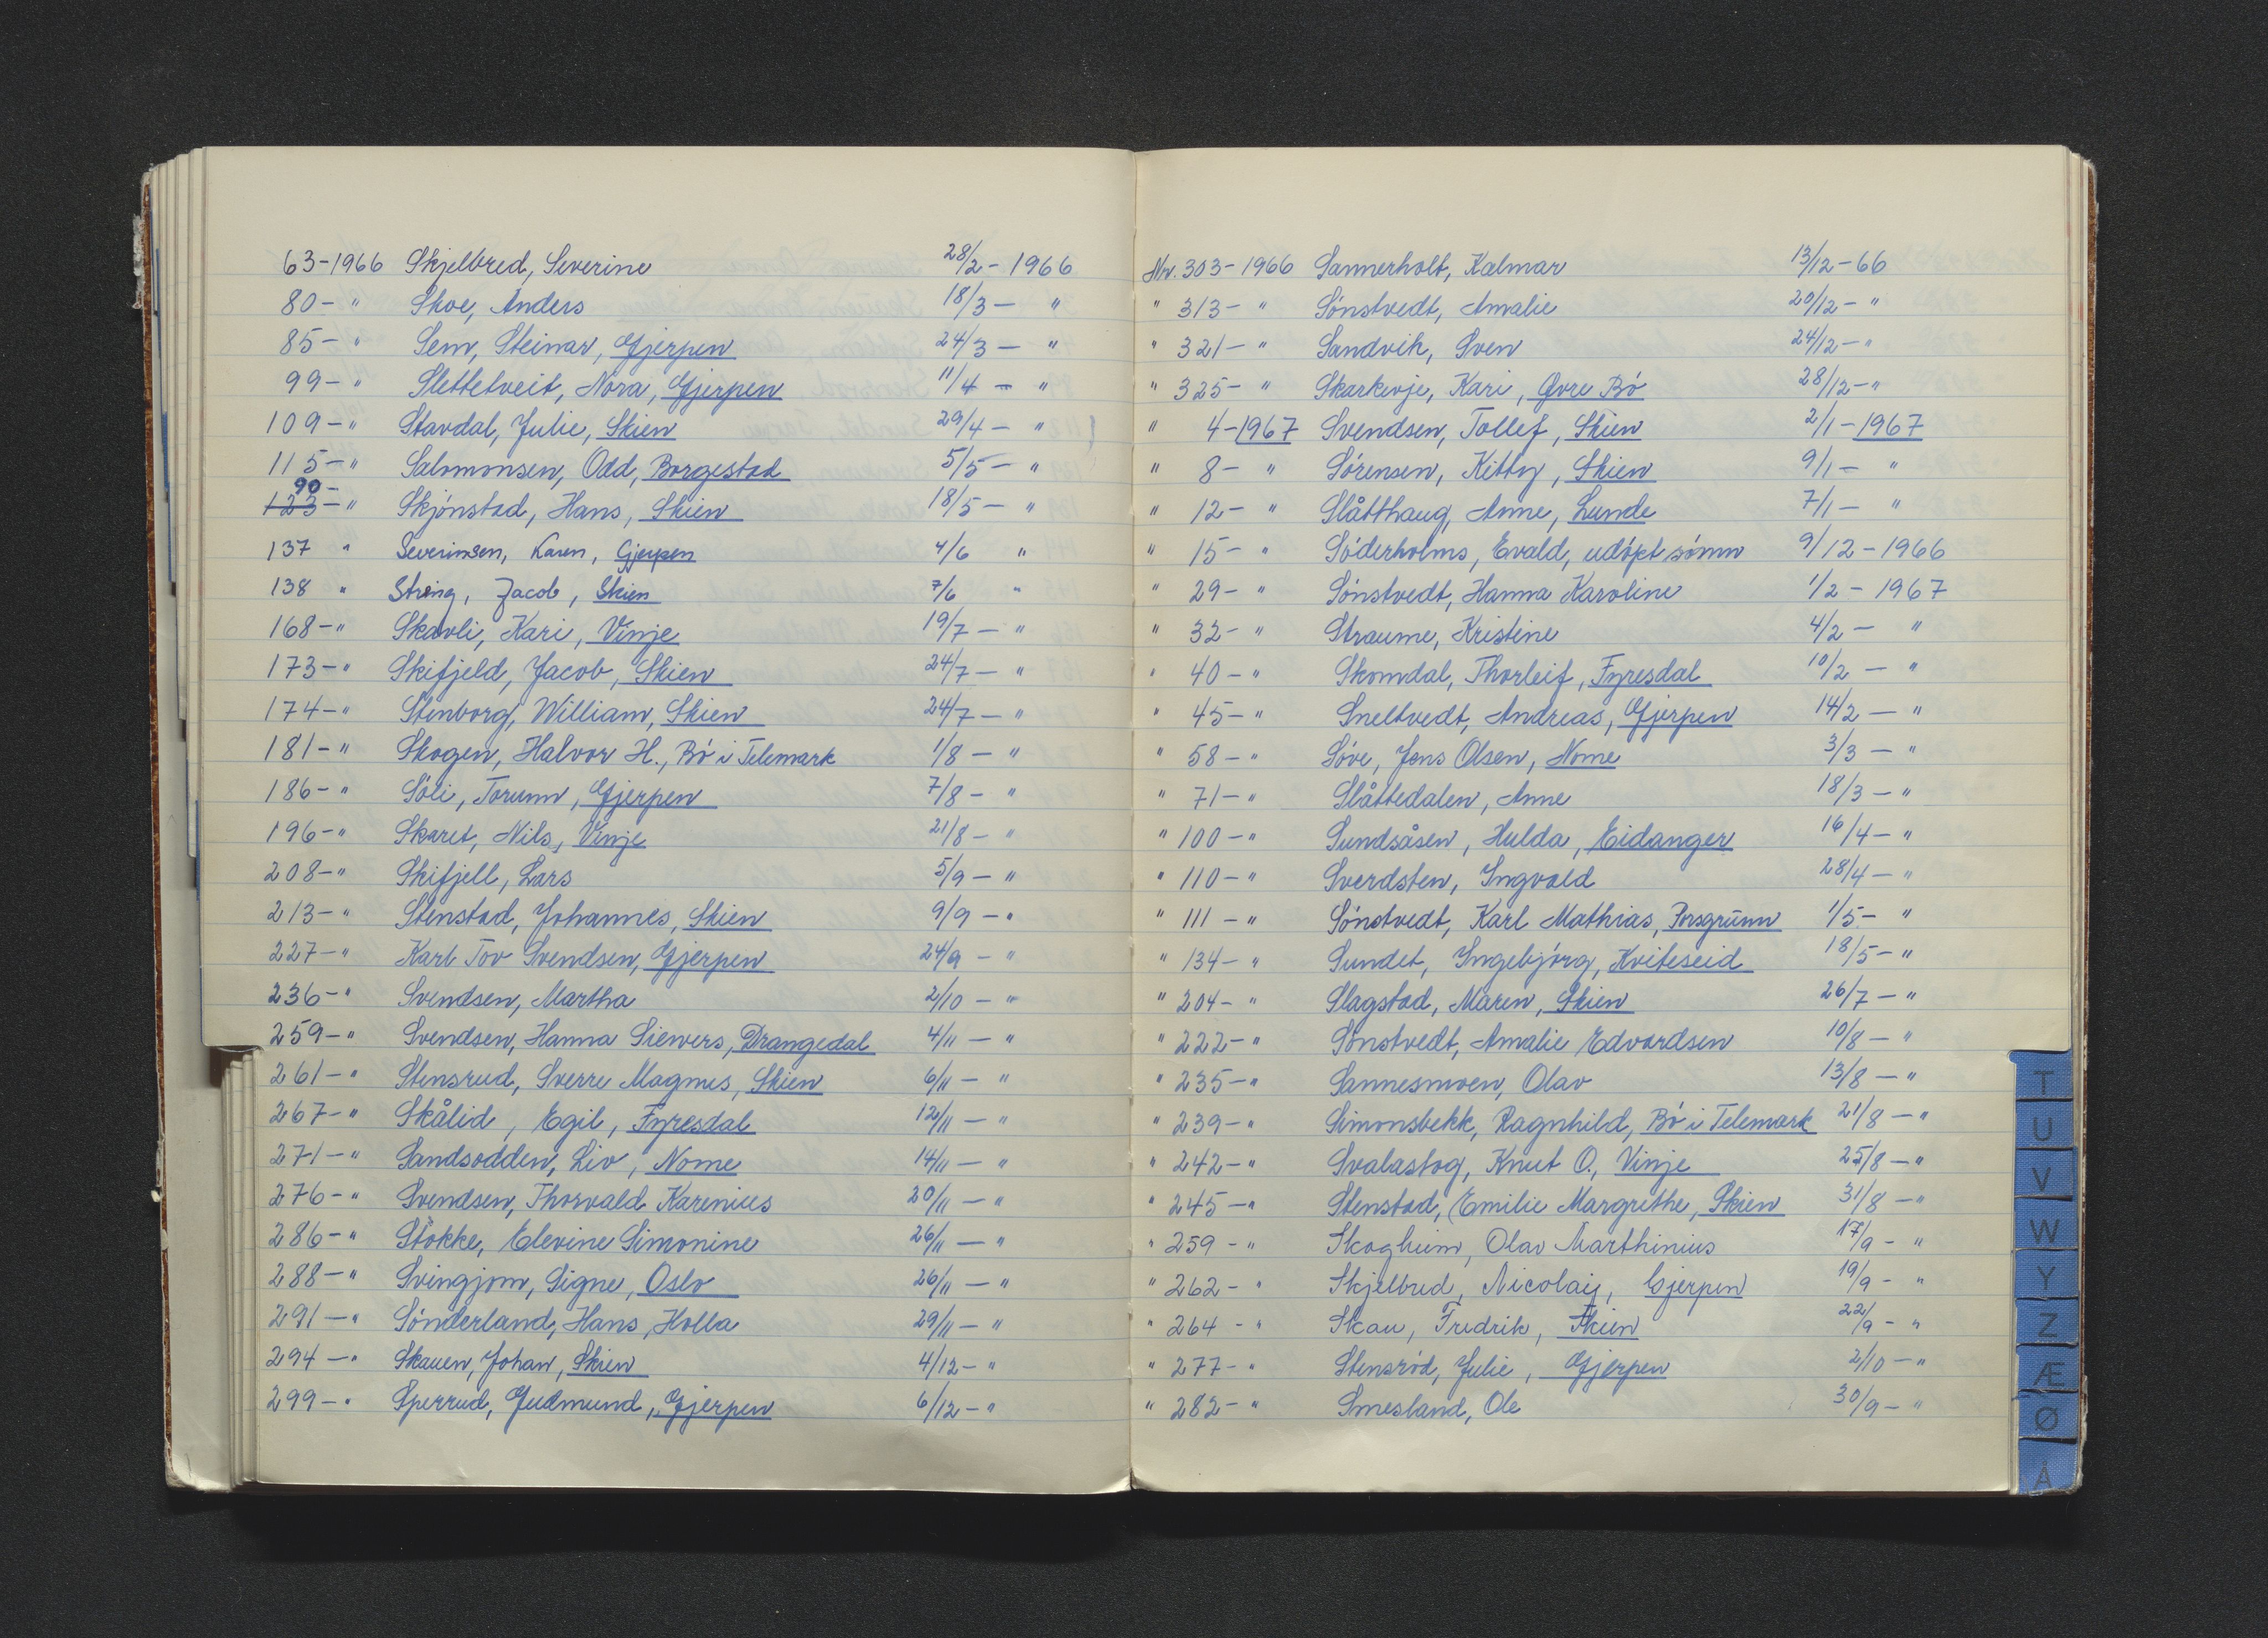 63-1966 Skjelbred, Severine 28/2 - 1966
80- " Skoe, Anders 18/3 - "
85- " Sem, Steinar, Gjerpen 24/3 - "
99- " Slettetveit, Nora, Gjerpen 11/4 - "
109- " Stavdal, Julie, Skien 29/4 - "
115- " Salomonsen, Odd, Borgestad 5/5 - "
90-
123- " Skjönstad, Hans, Skien 18/5 - "
137 " Severinsen, Karen, Gjerpen 4/6 "
138 " Streng, Jacob, Skien 7/6 "
168- " Skavli, Kari, Vinje 19/7 - "
173- " Skifjeld, Jacob, Skien 24/7 - "
174- " Stenborg, William, Skien 24/7 - "
181- " Skogen, Halvor H., Bö i Telemark 1/8 - "
186- " Söli, Torunn, Gjerpen 7/8 - "
196- " Skaret, Nils, Vinje 21/8 - "
208- " Skifjell, Lars 5/9 - "
213- " Stenstad, Johannes, Skien 9/9 - "
227- " Karl Tov Svendsen, Gjerpen 24/9 - "
236- " Svendsen, Martha 2/10 - "
259- " Svendsen, Hanna Siewers, Drangedal 4/11 - "
261- " Stensrud, Sverre Magnus, Skien 6/11 - "
267- " Skålid, Egil, Fyresdal 12/11 - "
271- " Sandsodden, Liv, Nome 14/11 - "
276- " Svendsen, Thorvald Karenius 20/11 - "
286- " Stokke, Elevine Simonine 26/11 - "
288- " Svingjom, Signe, Oslo 26/11 - "
291- " Sönderland, Hans, Holla 29/11 - "
294- " Skauen, Johan, Skien 4/12 - "
299- " Sperrud, Gudmund, Gjerpen 6/12 - "
Nr. 303-1966 Sannerholt, Kalmar 13/12 - 66
" 313- " Sönstvedt, Amalie 20/12 - "
" 321- " Sandvik, Sven 24/12 - "
" 325- " Skarkevje, Kari, Øvre Bö 28/12 - "
" 4-1967 Svendsen, Tollef, Skien 2/1 - 1967
" 8- " Sörensen, Kitty, Skien 9/1 - "
" 12- " Slåtthaug, Anne, Lunde 7/1 - "
" 15- " Söderholms, Evald, udöpt sönn 9/12 - 1966
" 29- " Sönstvedt, Hanna Karoline 1/2 - 1967
" 32- " Straume, Kristine 4/2 - "
" 40- " Skomdal, Thorleif, Fyresdal 10/2 - "
" 45- " Sneltvedt, Andreas, Gjerpen 14/2 - "
" 58- " Söve, Jens Olsen, Nome 3/3 - "
" 71- " Slåttedalen, Anne 18/3 - "
" 100- " Sundsåsen, Hulda, Eidanger 16/4 - "
" 110- " Sverdsten, Ingvald 28/4 - "
" 111- " Sönstvedt, Karl Mathias, Porsgrunn 1/5 - "
" 134- " Sundet, Ingebjörg, Kviteseid 18/5 - "
" 204- " Slagstad, Maren, Skien 26/7 - "
" 222- " Sönstvedt, Amalie Edvardsen 10/8 - "
" 235- " Sannesmoen, Olav 13/8 - "
" 239- " Simonsbekk, Ragnhild, Bö i Telemark 21/8 - "
" 242- " Svalastog, Knut O., Vinje 25/8 - "
" 245- " Stenstad, Emilie Margrethe, Skien 31/8 - "
" 259- " Skogheim, Olav Marthinius 17/9 - "
" 262- " Skjelbred, Nicolay, Gjerpen 19/9 - "
" 264- " Skau, Fredrik, Skien 22/9 - "
" 277- " Stensröd, Julie, Gjerpen 2/10 - "
" 282- " Smesland, Ole 30/9 - "
T
U
V
W
Y
Z
Æ
Ø
Å